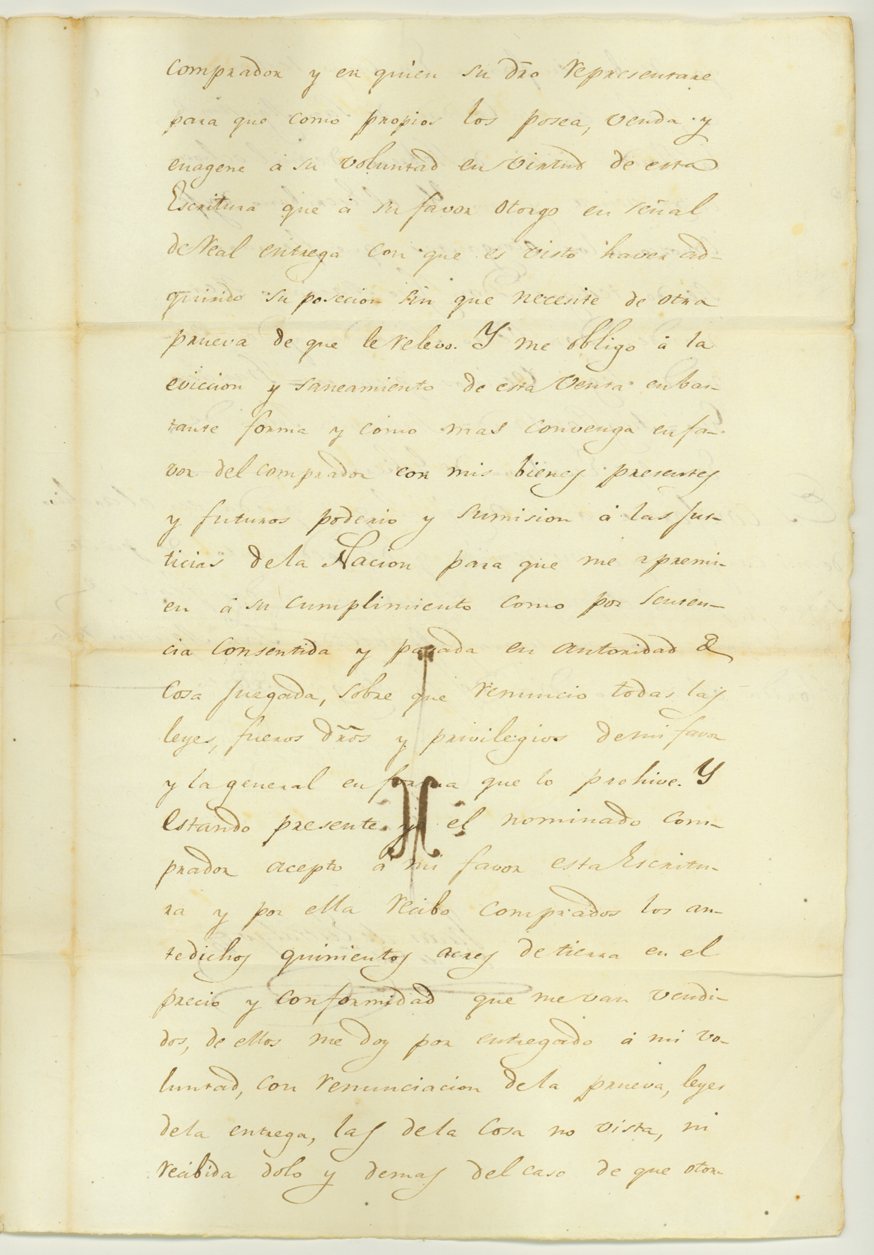 comprador y en quien su dr̃o representare
para que como propios los posea, venda y
enagene á su voluntad en virtud de esta
Escritura que á su favor otorgo en señal
de Real entrega con que es visto haver ad-
quirido su posecion sin que necesite de otra
prueva de que le relevo. Y me obligo á la
eviccion y saneamiento de esta Venta en bas-
tante forma y como mas convenga en fa-
vor del comprador con mis bienes presentes
y futuros poderio y sumision á las Jus-
ticias de la Nacion para que me apremi-
en á su cumplimiento como por senten-
cia consentida y pasada en autoridad de
cosa juzgada, sobre que renuncio todas las
leyes, fueros dr̃os y privilegios de mi favor
y la general en forma que lo prohive. Y
estando presente yo el nominado com-
prador acepto á mi favor esta Escritu-
ra y por ella recibo comprados los an-
tedichos quinientos acres de tierra en el
precio y conformidad que me van vendi-
dos, de ellos me doy por entregado á mi vo-
luntad, con renunciacion de la prueva, leyes
de la entrega, las de la cosa no vista, ni
recibida dolo y demas del caso de que otor-